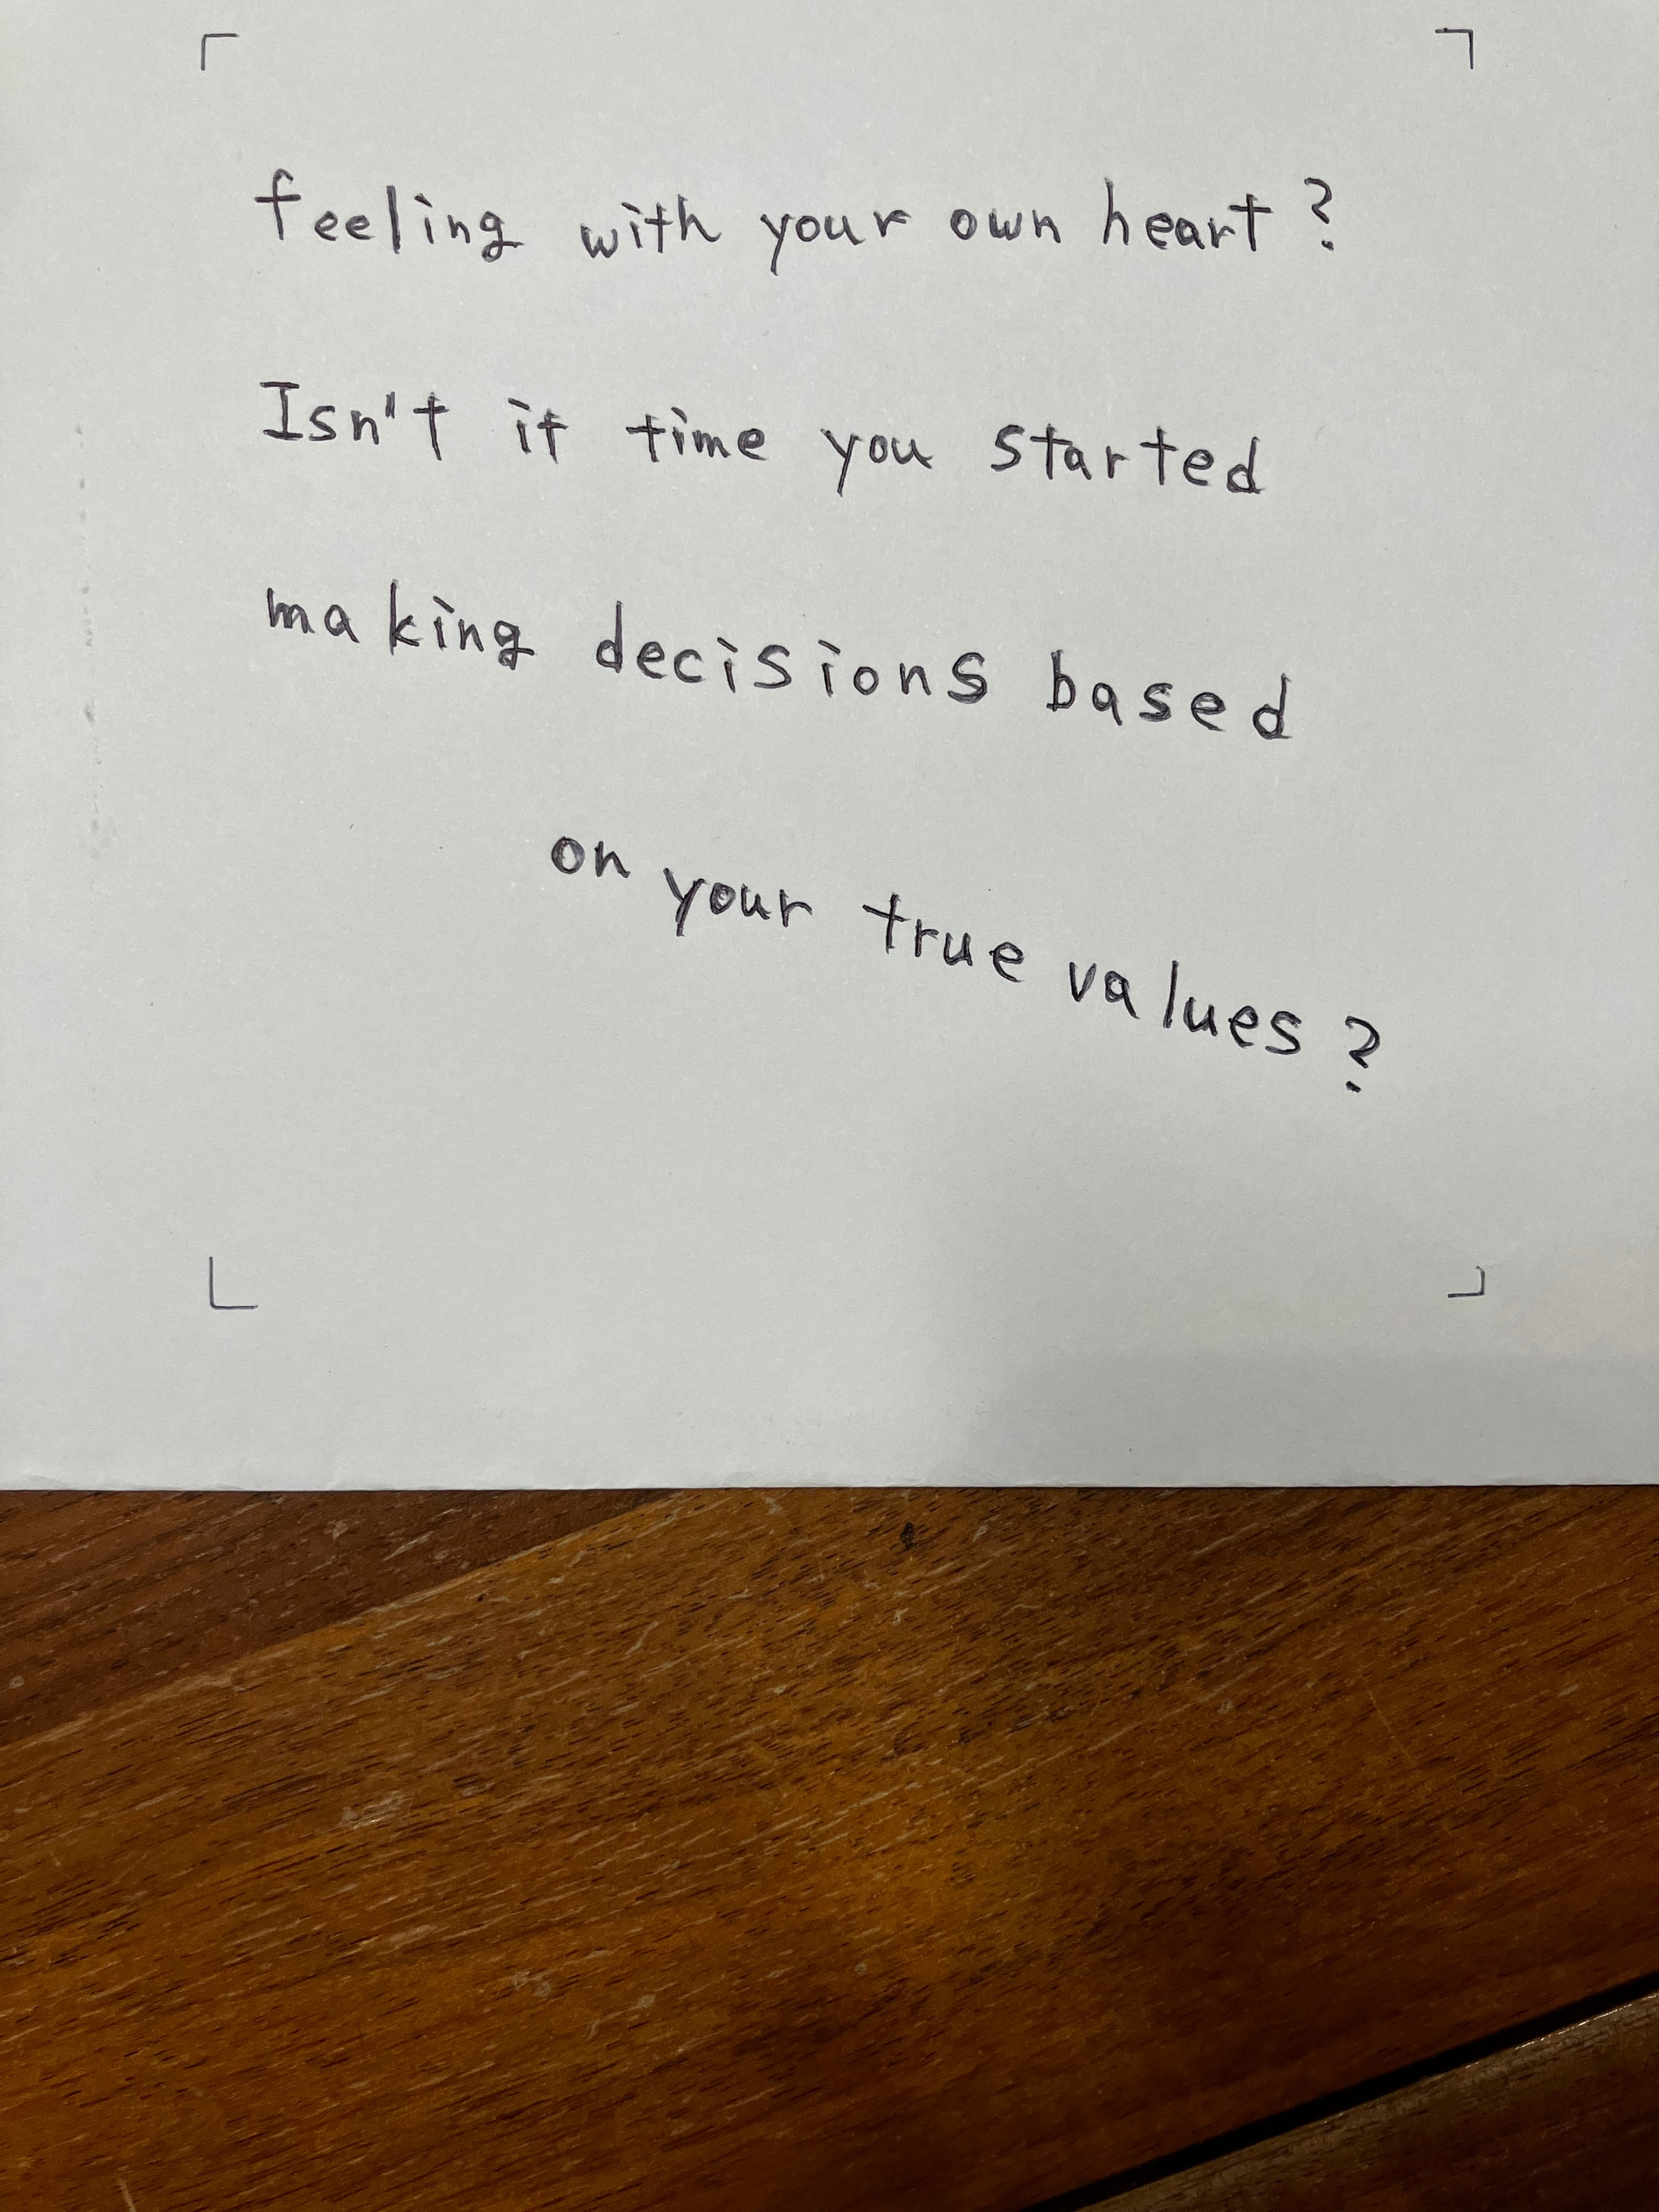 feeling with your own heart?
Isn't it time you started
making decisions based
on your true values?